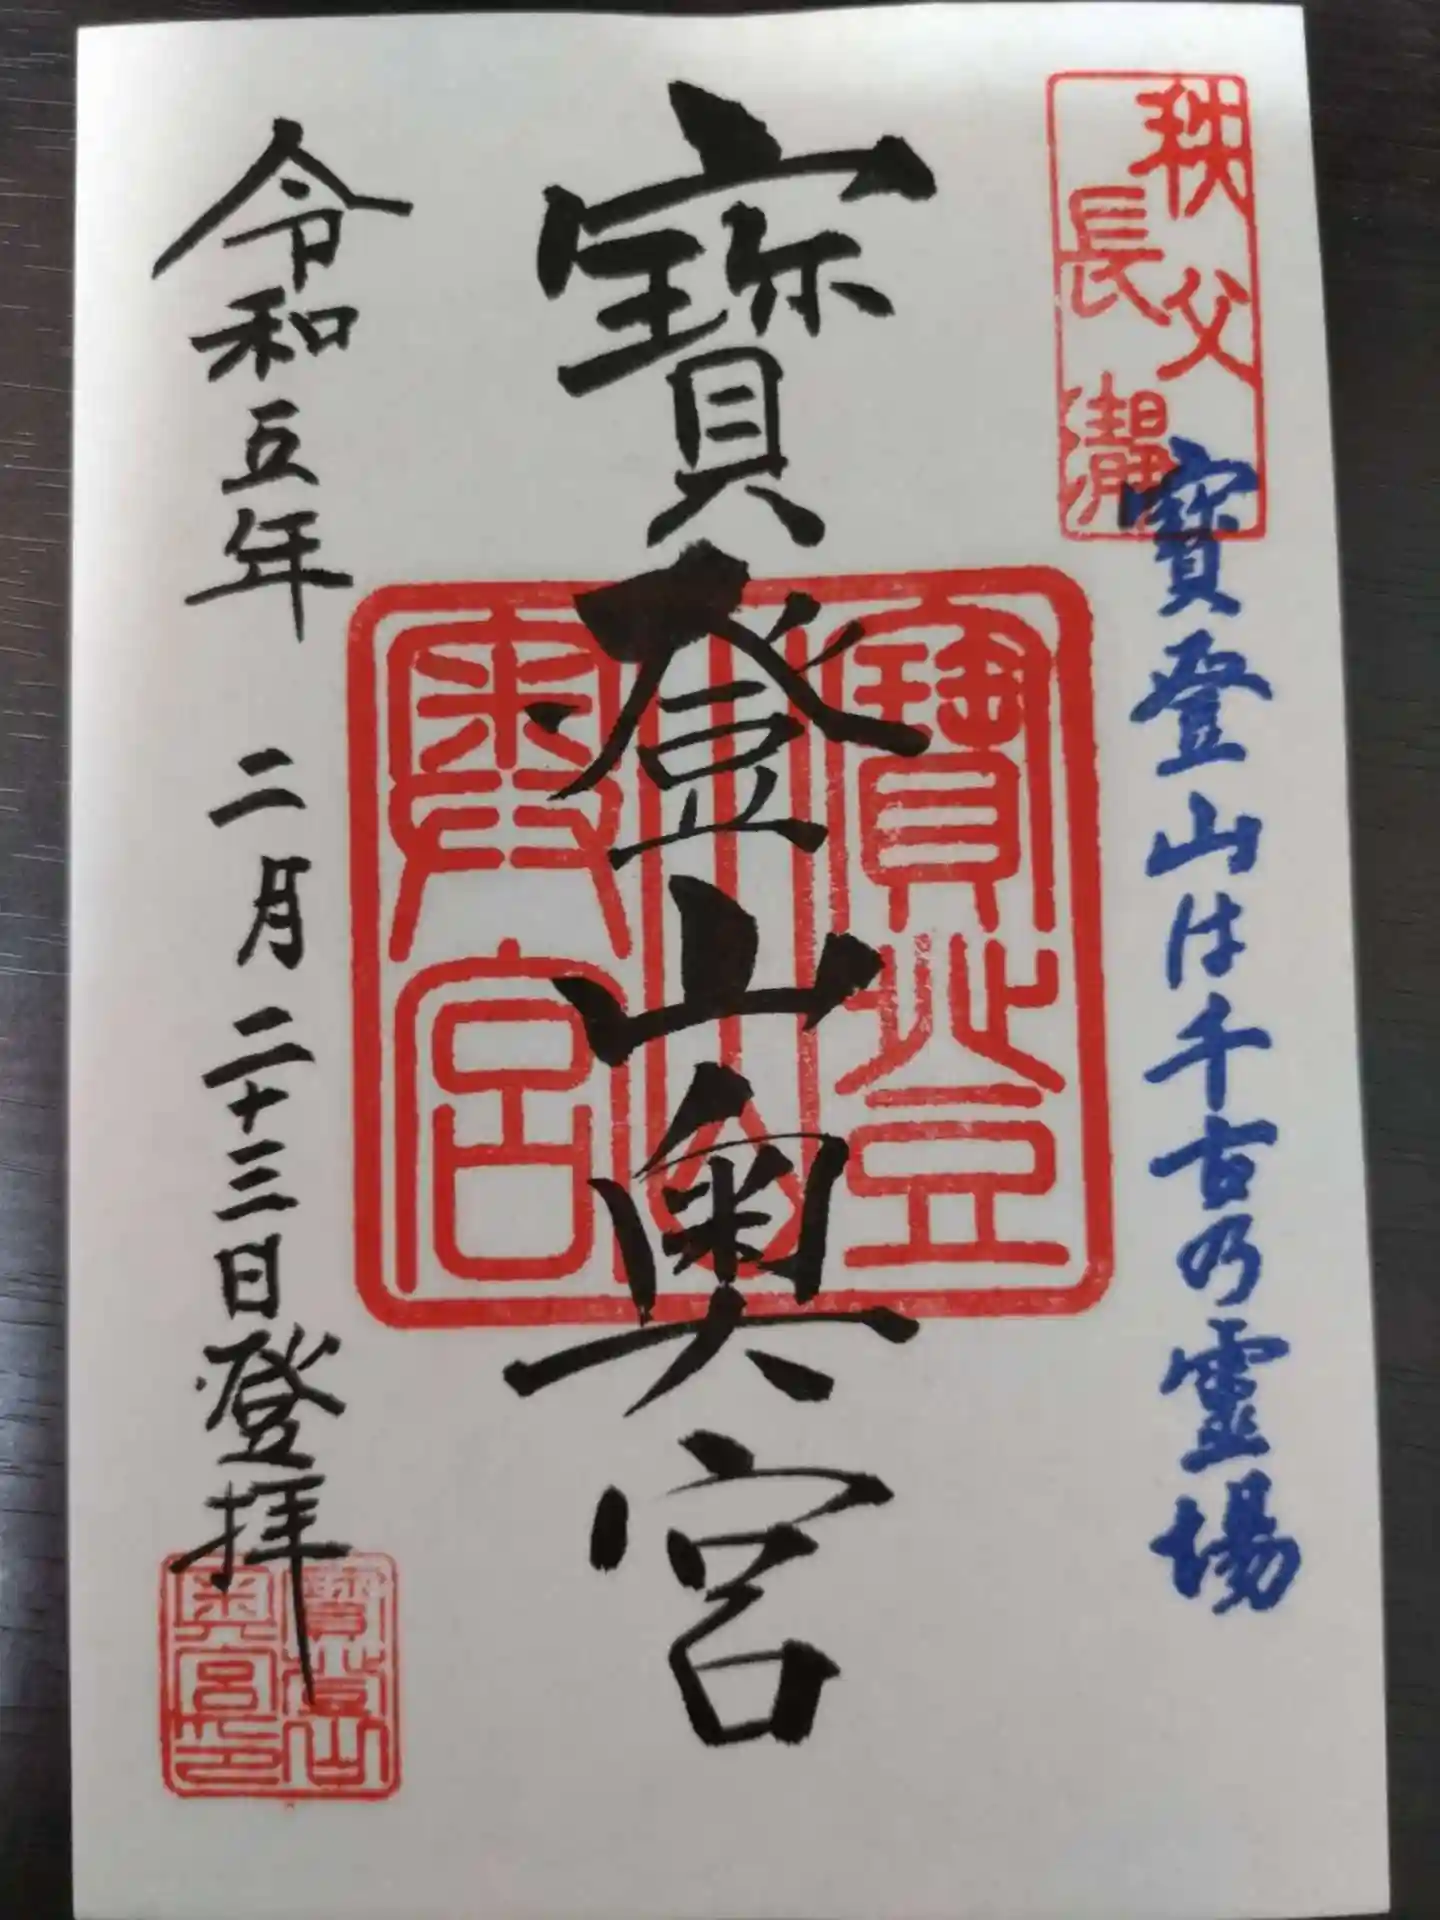 秩父
長瀞
寳登山は千古乃霊場
寳登山奥宮
寳登
山
奥宮
令和五年 二月二十三日登拝
寳登山
奥宮印